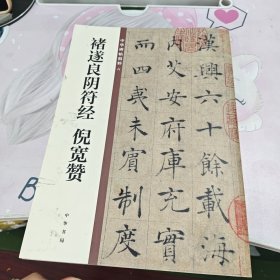 中华碑帖精粹
褚遂良阴符经 倪宽赞
中华书局
漢興六十餘載海
内艾安府庫充實
而四夷未賓制度